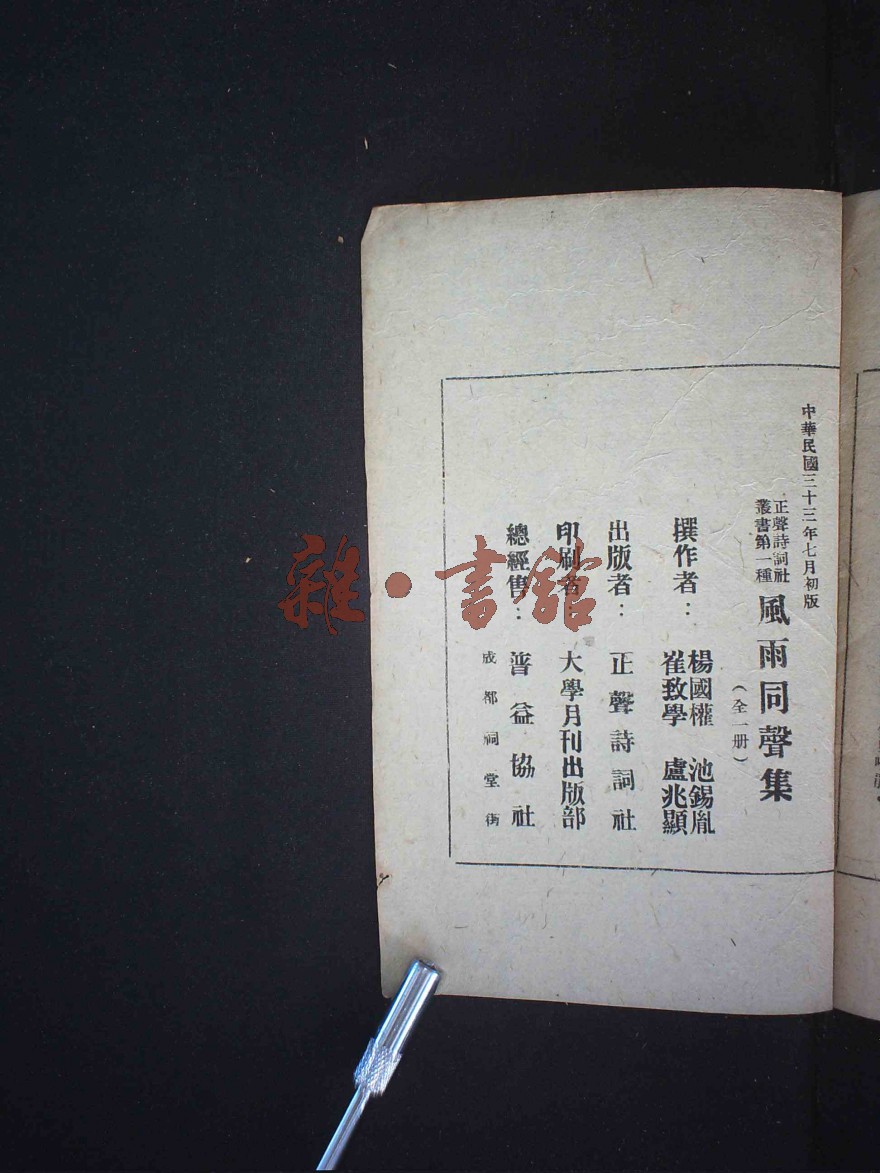 中華民國三十三年七月初版
正聲詩詞社
叢書第一種
風雨同聲集
（全一册）
撰作者：
楊國權 池錫胤
崔致學 盧兆顯
出版者：正聲詩詞社
印刷者：大學月刊出版部
總經售：普益協社
成都祠堂街
雜·書館